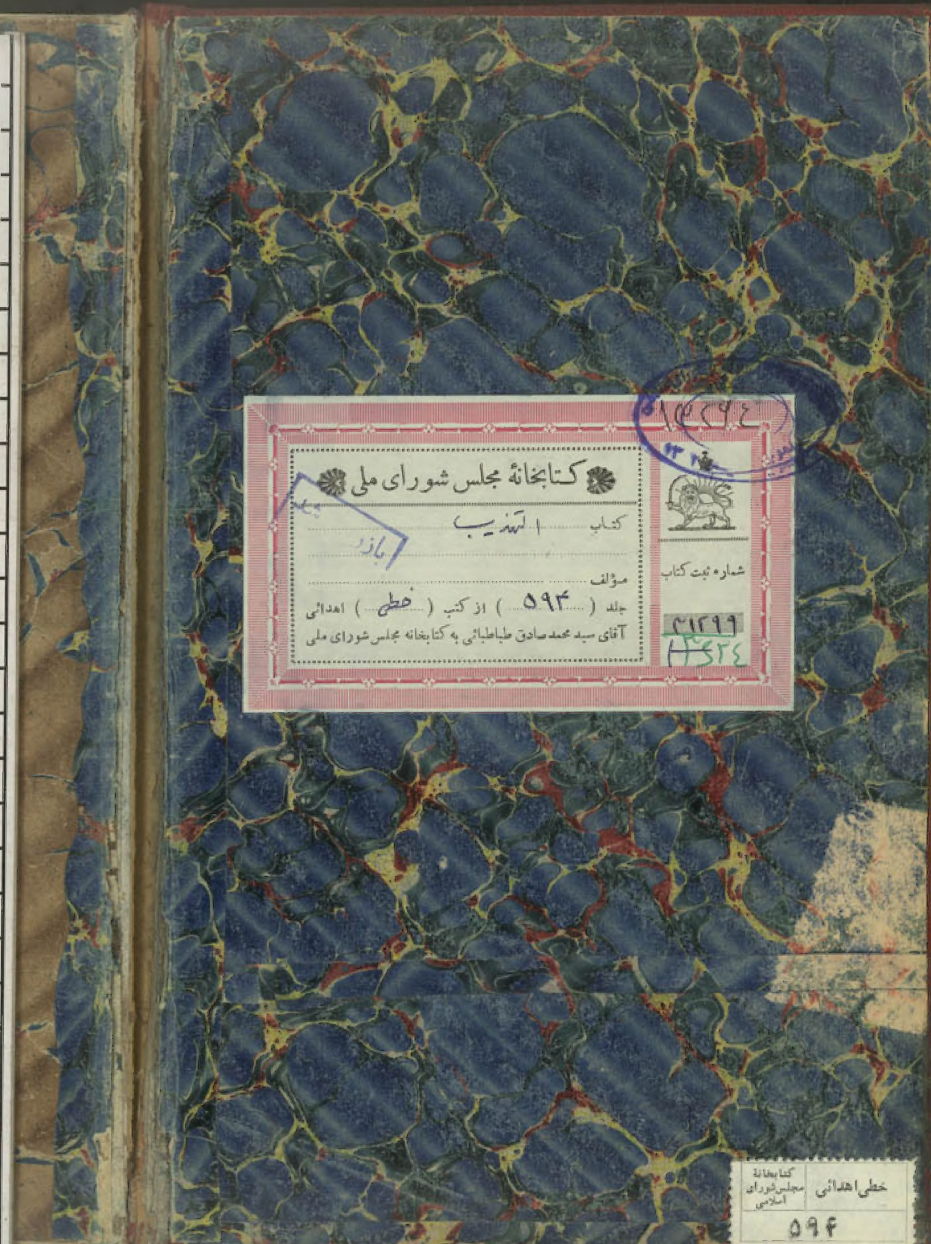 ۱۳۲۹٤
کتابخانهٔ مجلس شورای ملی
کتاب التهذیب
مؤلف
جلد ( ۵۹۴ ) از کتب ( خطی ) اهدائی
آقای سید محمدصادق طباطبائی به کتابخانه مجلس شورای ملی
شماره ثبت کتاب
۲۱۲۹۹
خطی اهدائی
کتابخانهٔ
مجلس شورای
اسلامی
۵۹۴